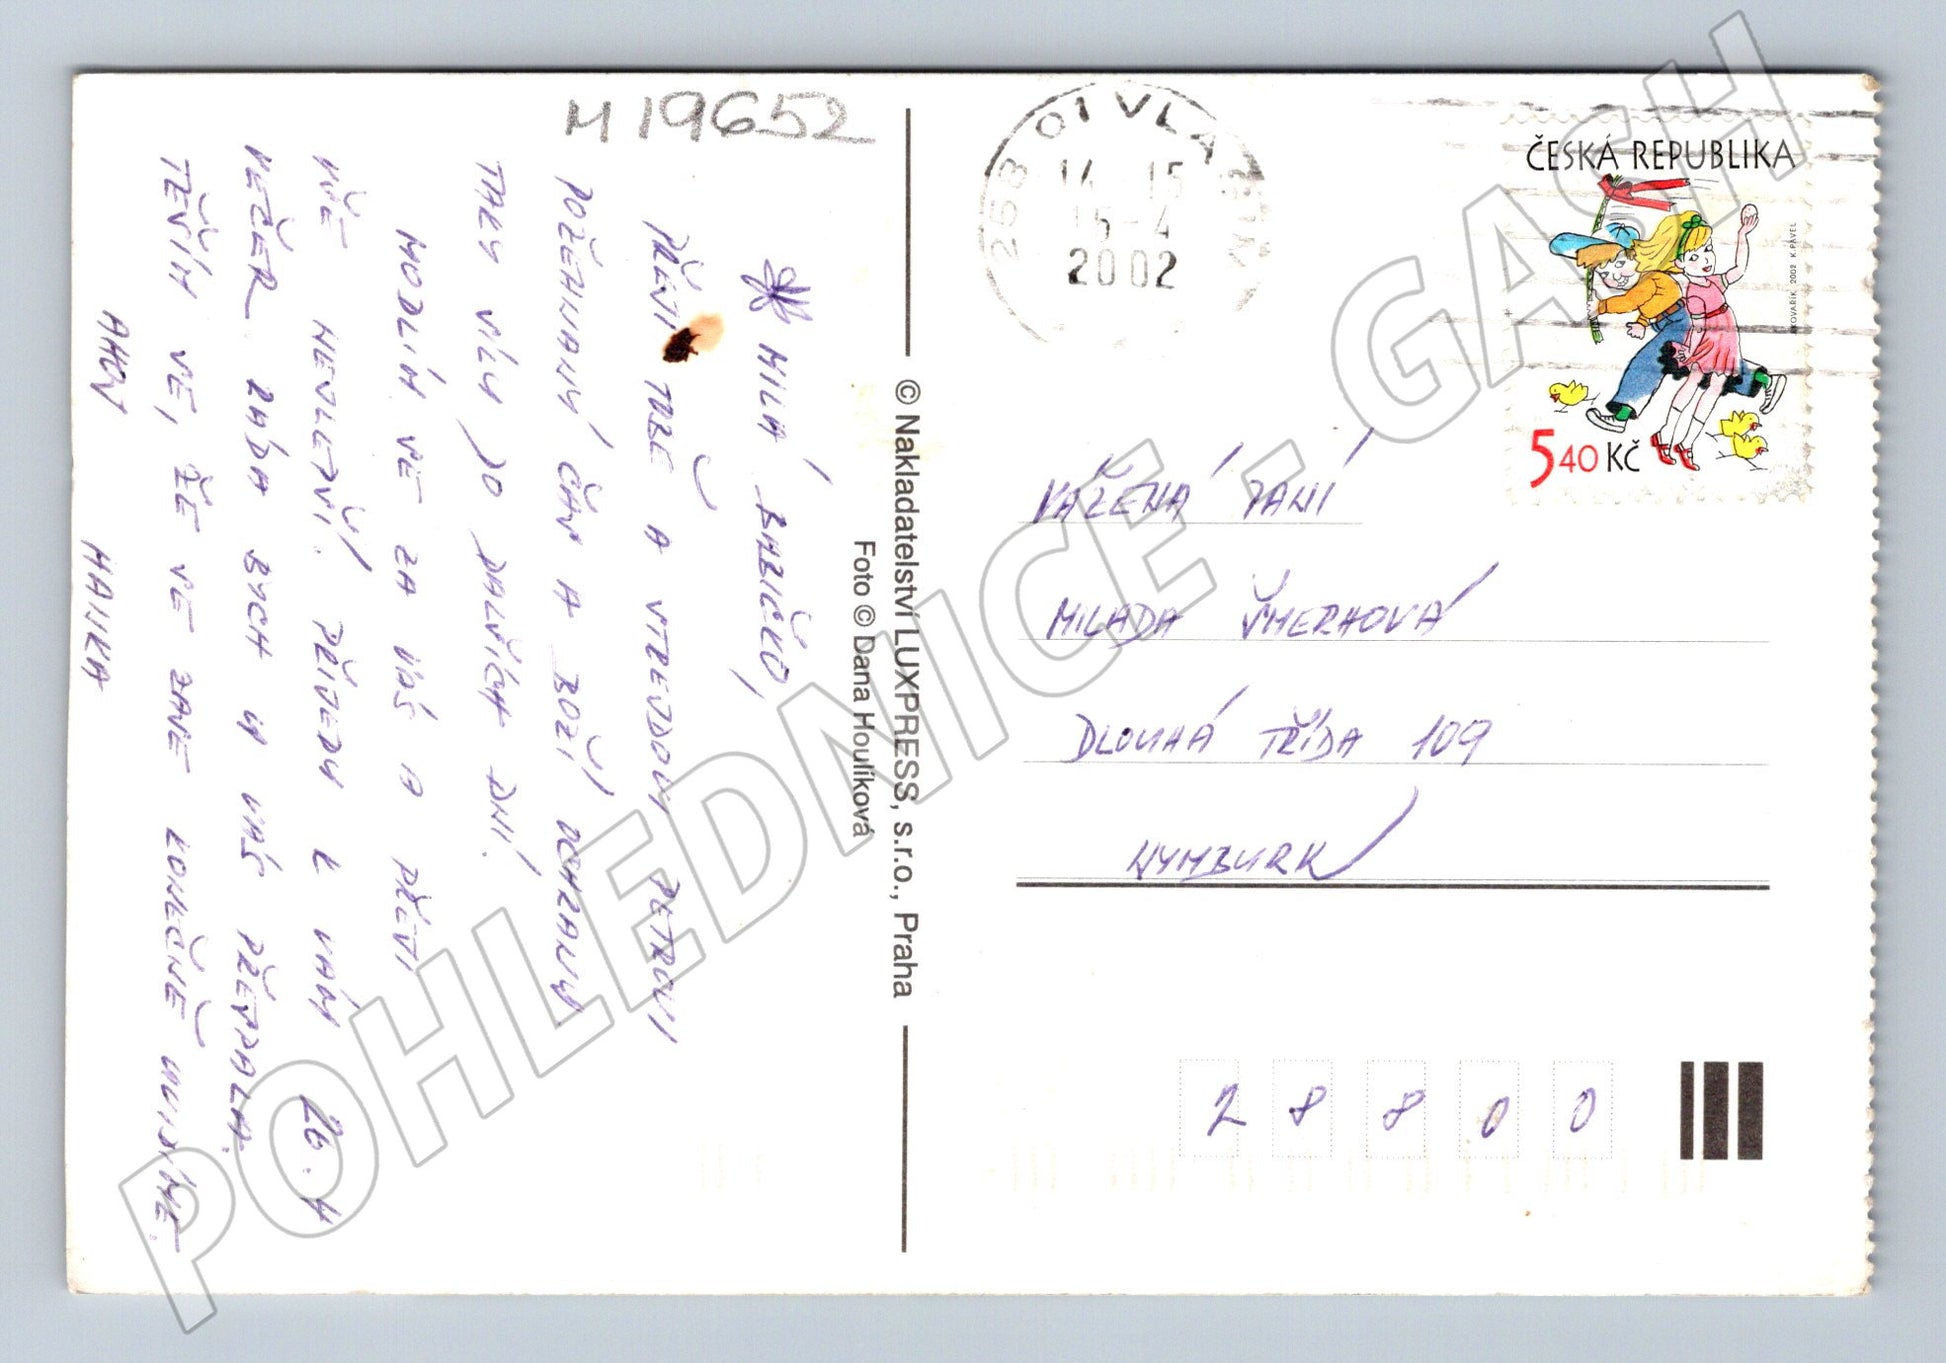 M 19652
MILÁ BABIČKO,
PŘEJI TOBĚ A STREJDOVI PETROVI
POŽEHNANÝ ČAS A BOŽÍ OCHRANU
TAKY SÍLU DO DALŠÍCH DNÍ.
MODLÍM SE ZA VÁS A PĚTI
VŠE NEJLEPŠÍ. PŘIJEDU K VÁM 26.4
VEČER. RÁDA BYCH U VÁS PŘESPALA.
TĚŠÍM SE, ŽE SE ZASE KONEČNĚ UVIDÍME.
AHOJ HANKA
© Nakladatelství LUXPRESS, s.r.o., Praha
Foto © Dana Houlíková
258 01 VLAŠIM
14-15
15-4
2002
ČESKÁ REPUBLIKA
KOVAŘÍK 2002 K.PÁVEL
5 40 KČ
VÁŽENÁ PANÍ
MILADA ŠMERHOVÁ
DLOUHÁ TŘÍDA 109
NYMBURK
28800
POHLEDNICE - GASH